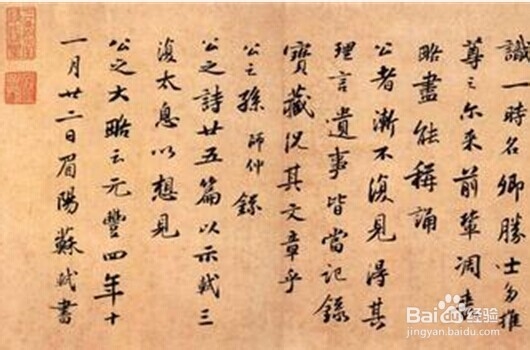 識一時名卿勝士多推
尊之尔來前輩凋喪
略盡能稱誦
公者漸不復見得其
理言遺事皆當記錄
寶藏況其文章乎
公之孫師仲錄
公之詩廿五篇以示軾三
復太息以想見
公之大略云元豐四年十
一月廿二日眉陽蘇軾書
Baidu经验
jingyan.baidu.com